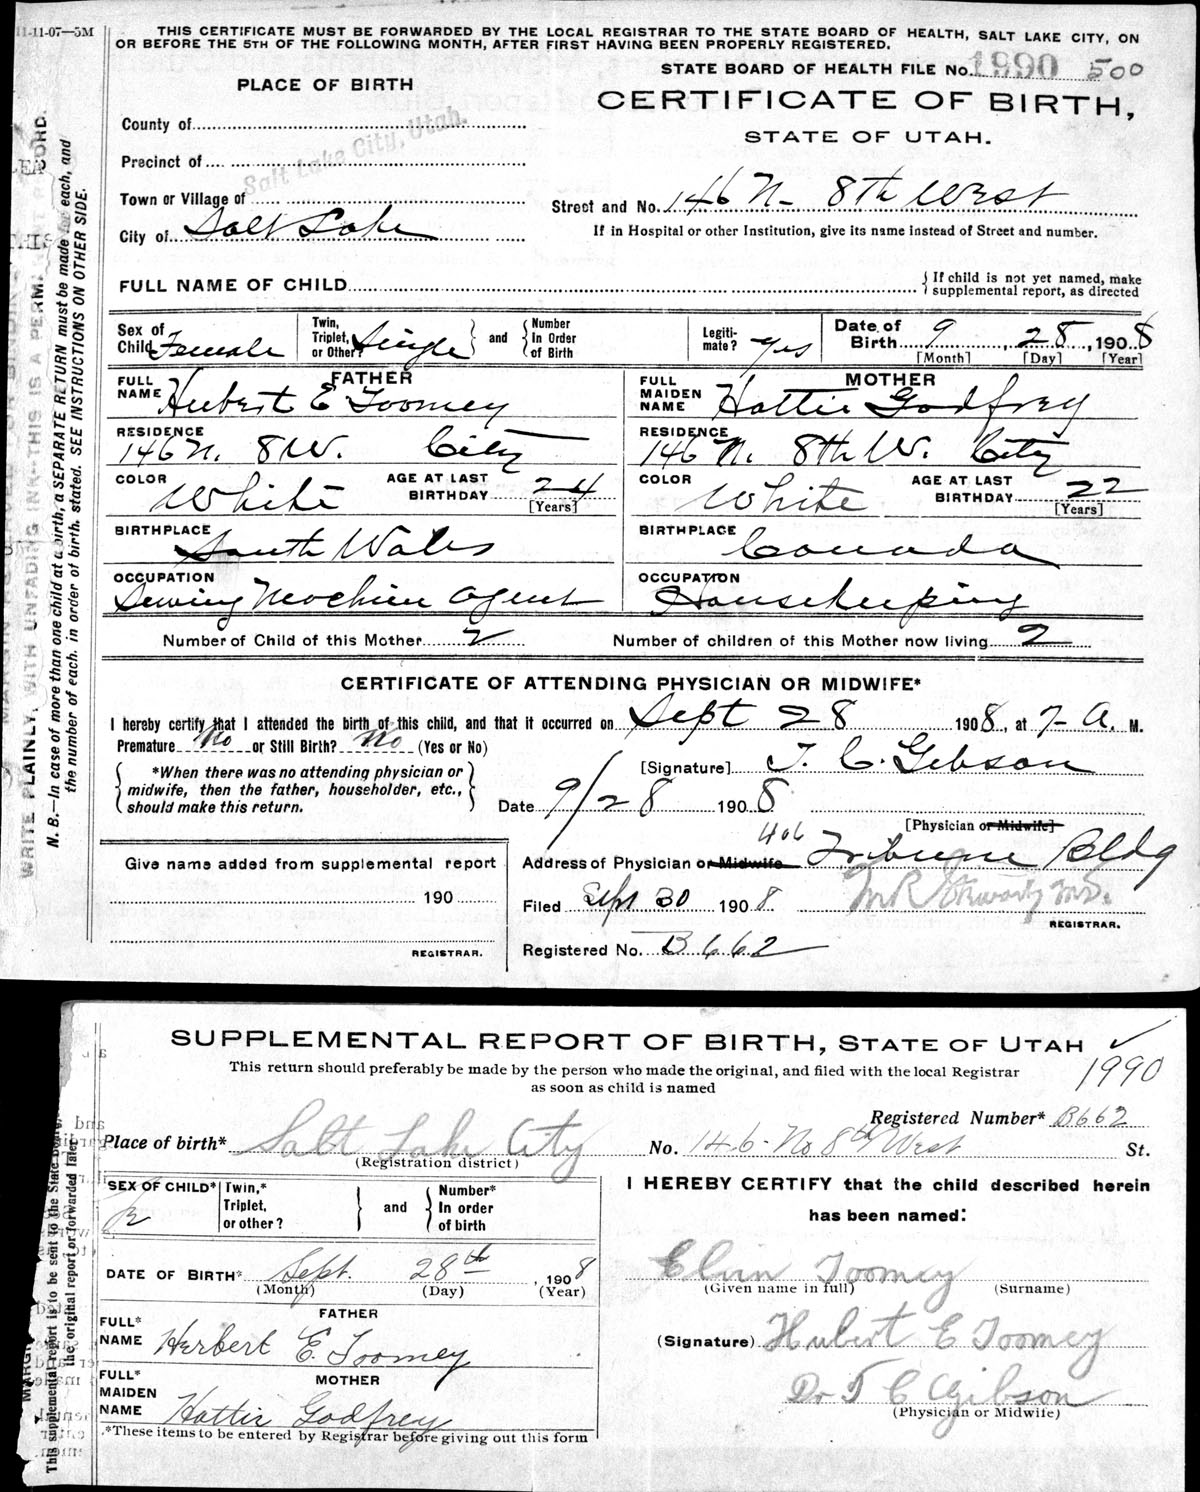 11-11-07—5M
THIS CERTIFICATE MUST BE FORWARDED BY THE LOCAL REGISTRAR TO THE STATE BOARD OF HEALTH, SALT LAKE CITY, ON
OR BEFORE THE 5TH OF THE FOLLOWING MONTH, AFTER FIRST HAVING BEEN PROPERLY REGISTERED.
STATE BOARD OF HEALTH FILE No. 1990 500
PLACE OF BIRTH
CERTIFICATE OF BIRTH,
STATE OF UTAH.
County of
Salt Lake City, Utah.
Precinct of
Town or Village of
Street and No. 146 N- 8th West
City of Salt Lake
If in Hospital or other Institution, give its name instead of Street and number.
FULL NAME OF CHILD
If child is not yet named, make
supplemental report, as directed
Sex of Child Female
Twin, Triplet, or Other? Single
and
Number In Order of Birth
Legitimate? Yes
Date of Birth 9 28, 1908
[Month] [Day] [Year]
FATHER
FULL NAME Hubert E Toomey
MOTHER
FULL MAIDEN NAME Hattie Godfrey
RESIDENCE 146 N. 8 W. City
RESIDENCE 146 N. 8th W. City
COLOR White AGE AT LAST BIRTHDAY 24 [Years]
COLOR White AGE AT LAST BIRTHDAY 22 [Years]
BIRTHPLACE South Wales
BIRTHPLACE Canada
OCCUPATION Sewing Machine Agent
OCCUPATION Housekeeping
Number of Child of this Mother 2
Number of children of this Mother now living 2
CERTIFICATE OF ATTENDING PHYSICIAN OR MIDWIFE*
I hereby certify that I attended the birth of this child, and that it occurred on Sept 28 1908, at 7- A. M.
Premature No or Still Birth? No (Yes or No)
*When there was no attending physician or
midwife, then the father, householder, etc.,
should make this return.
[Signature] T. C. Gibson
Date 9/28 1908
[Physician or Midwife]
Address of Physician or Midwife 406 Tribune Bldg
Give name added from supplemental report
190
REGISTRAR.
Filed Sept 30 1908
REGISTRAR.
Registered No. B662
WRITE PLAINLY, WITH UNFADING INK-THIS IS A PERMANENT RECORD.
N. B.—In case of more than one child at a birth, a SEPARATE RETURN must be made for each, and
the number of each, in order of birth, stated. SEE INSTRUCTIONS ON OTHER SIDE.
SUPPLEMENTAL REPORT OF BIRTH, STATE OF UTAH
1990
This return should preferably be made by the person who made the original, and filed with the local Registrar
as soon as child is named
Registered Number* B662
Place of birth* Salt Lake City No. 146- No 8th West St.
(Registration district)
SEX OF CHILD*
Twin,* Triplet, or other?
and
Number* In order of birth
I HEREBY CERTIFY that the child described herein
has been named:
DATE OF BIRTH* Sept. 28th, 1908
(Month) (Day) (Year)
Elvin Toomey
(Given name in full) (Surname)
FATHER
FULL* NAME Herbert E. Toomey
(Signature) Hubert E Toomey
MOTHER
FULL* MAIDEN NAME Hattie Godfrey
Dr T C Gibson
(Physician or Midwife)
*These items to be entered by Registrar before giving out this form
This supplemental report is to be sent to the State Board
the original report or forwarded later.